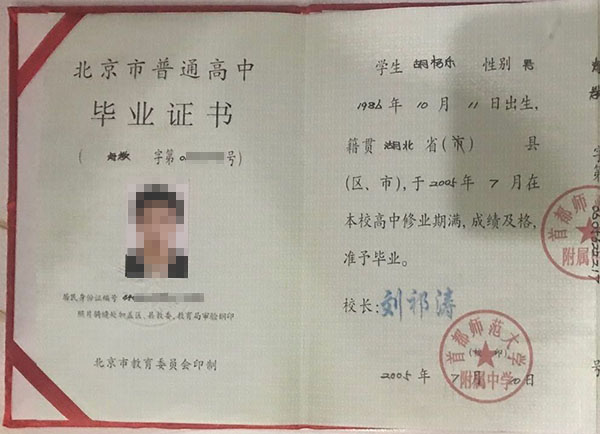 北京市普通高中
毕业证书
( 字第0 号)
居民身份证编号
照片骑缝处加盖区、县教委、教育局审验钢印
北京市教育委员会印制
学生 胡杨乐 性别 男
1986年10月11日出生,
籍贯 湖北省(市) 县
(区、市),于2005年7月在
本校高中修业期满,成绩及格,
准予毕业。
校长: 刘祁涛
首都师范大学
附属中学
2005年7月10日
首都师范
附属
字第
号